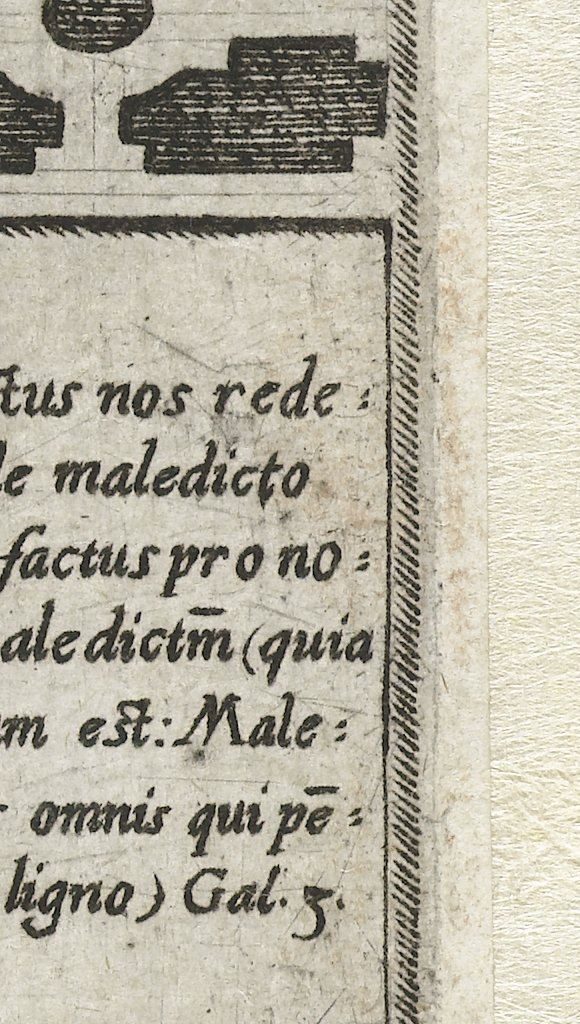 ctus nos rede:
le maledicto
factus pro no:
aledictm̄ (quia
m est: Male:
omnis qui pē:
ligno) Gal. 3.